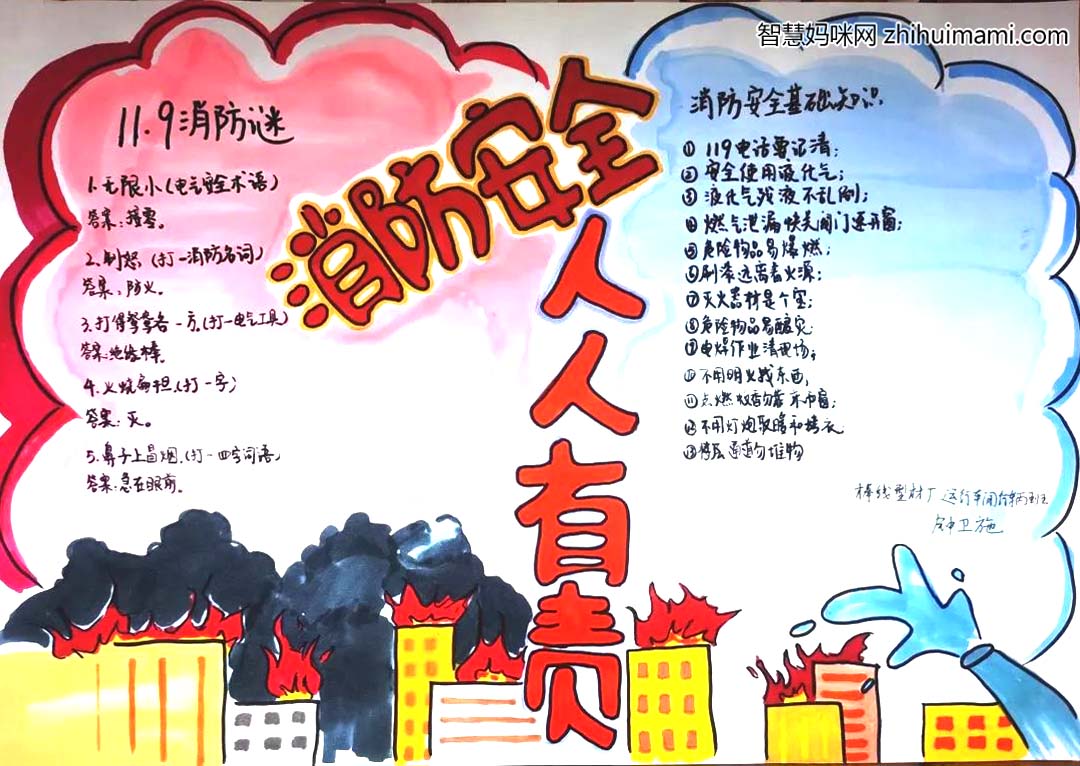 智慧妈咪网 zhihuimami.com
消防安全
人人有责
11.9消防谜
1.无限小(电气安全术语)
答案:接零。
2.制怒(打一消防名词)
答案:防火。
3.打得鸳鸯各一方.(打一电气工具)
答案:绝缘棒.
4.火烧扁担.(打一字)
答案:灭。
5.鼻子上冒烟.(打一四字词语)
答案:急在眼前.
消防安全基础知识
① 119电话要记清;
② 安全使用液化气;
③ 液化气残液不乱倒;
④ 燃气泄漏快关阀门速开窗;
⑤ 危险物品易爆燃;
⑥ 刷漆远离着火源;
⑦ 灭火器材是个宝;
⑧ 危险物品易酿灾
⑨ 电焊作业清现场;
⑩ 不用明火找东西,
⑪ 点燃蚊香勿靠
⑫ 不用灯炮取暖和烤衣
⑬ 楼层通道勿堆物
棒线型材厂 运行车间